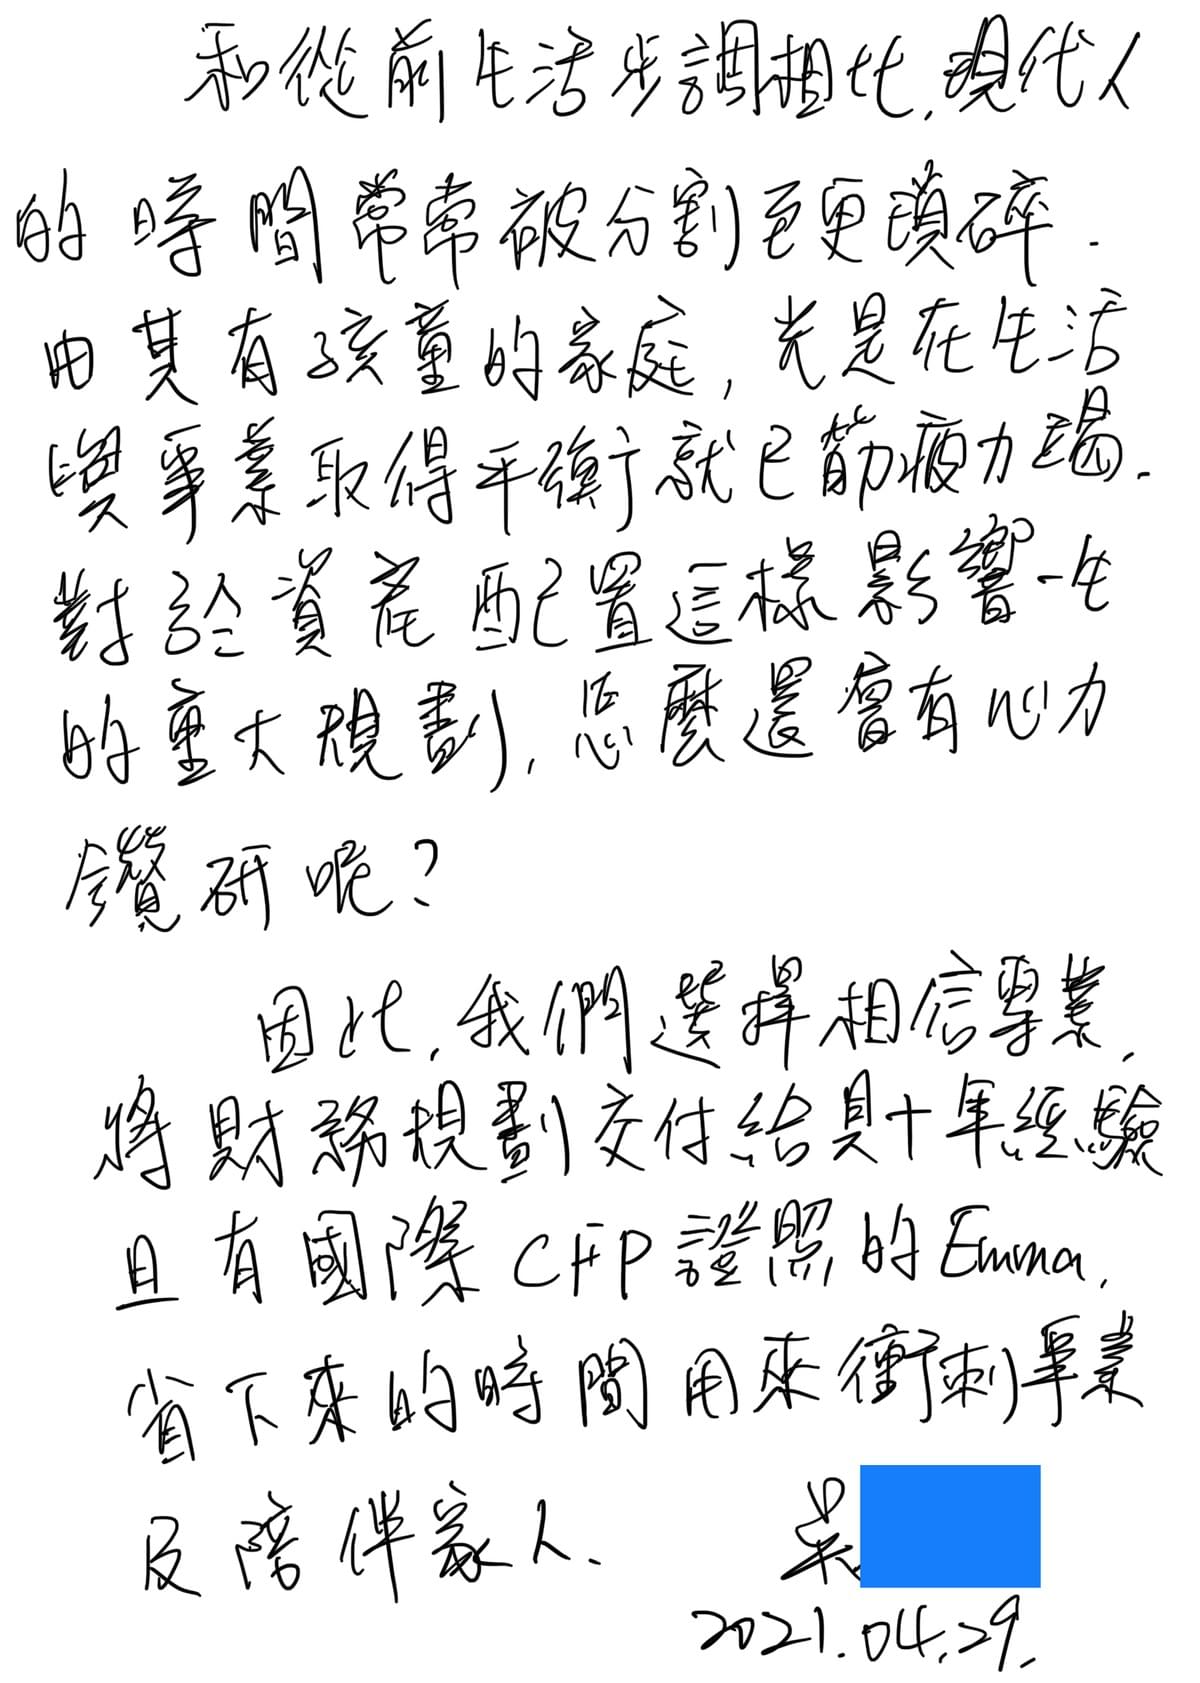 和從前生活步調相比,現代人
的時間常常被分割至更瑣碎.
由其有孩童的家庭,光是在生活
與事業取得平衡就已筋疲力竭.
對於資產配置這樣影響一生
的重大規劃,怎麼還會有心力
鑽研呢?
因此,我們選擇相信專業,
將財務規劃交付給具十年經驗
且有國際CFP證照的Emma,
省下來的時間用來衝刺事業
及陪伴家人.
吳
2021.04.29.